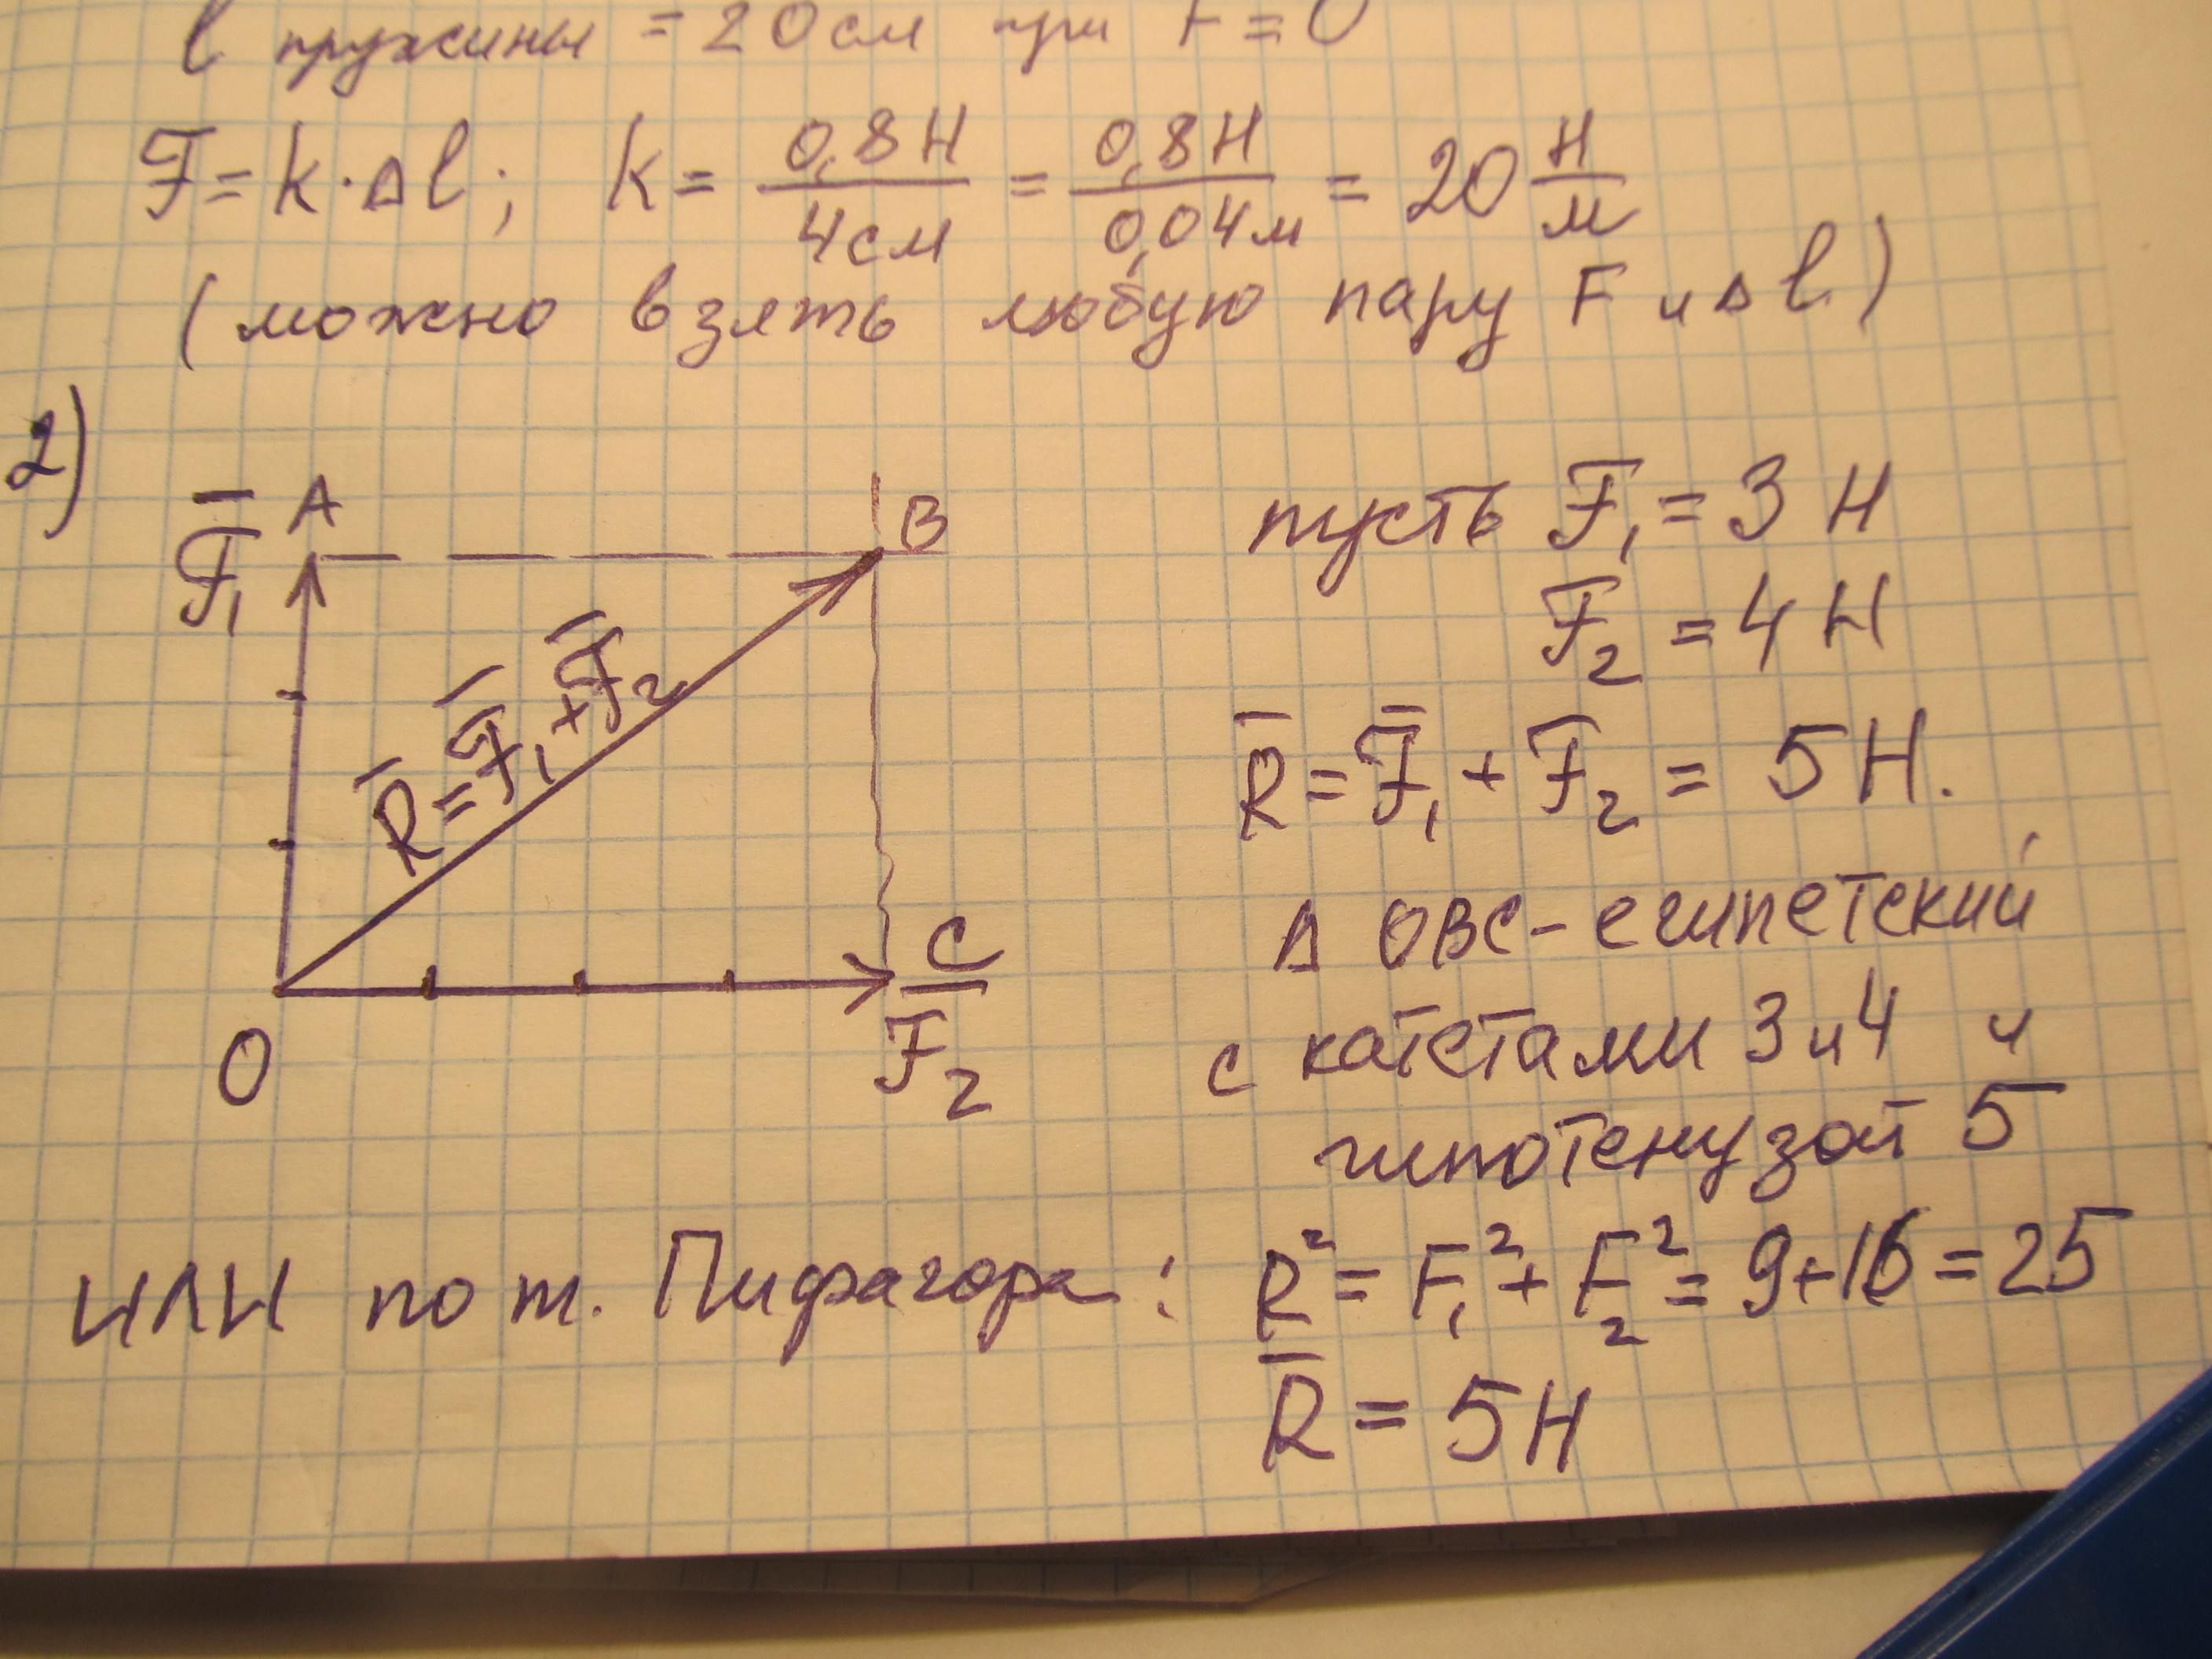 l пружины = 20 см при F = 0
F = k · Δl; k = 0,8 Н / 4 см = 0,8 Н / 0,04 м = 20 Н/м
(можно взять любую пару F и Δl)
2)
F̅₁ A B
R̅ = F̅₁ + F̅₂
O C
F̅₂
пусть F̅₁ = 3 Н
F̅₂ = 4 Н
R̅ = F̅₁ + F̅₂ = 5 Н.
Δ ОВС - египетский
с катетами 3 и 4 и
гипотенузой 5
ИЛИ по т. Пифагора: R² = F₁² + F₂² = 9 + 16 = 25
R̅ = 5 Н